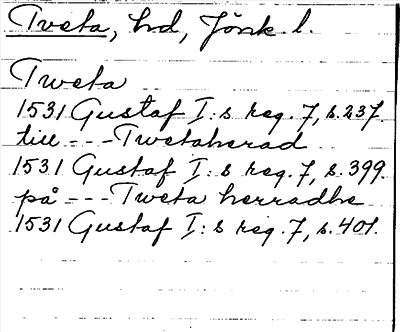 Tveta, hd, Jönk. l.
Tweta
1531 Gustaf I:s reg. 7, s. 237.
till --- Twetaherad
1531 Gustaf I:s reg. 7, s. 399.
på --- Tweta herradhe
1531 Gustaf I:s reg. 7, s. 401.